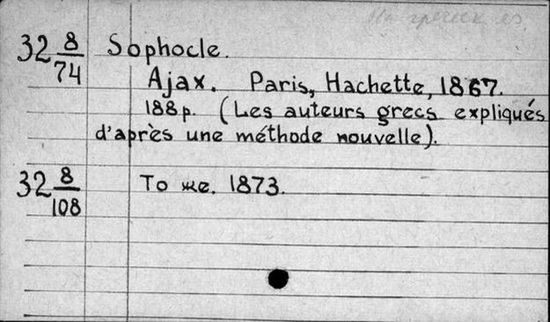 32 8/74 Sophocle.
Ajax. Paris, Hachette, 1867.
188 p. (Les auteurs grecs expliqués
d'après une méthode nouvelle).
32 8/108 То же. 1873.